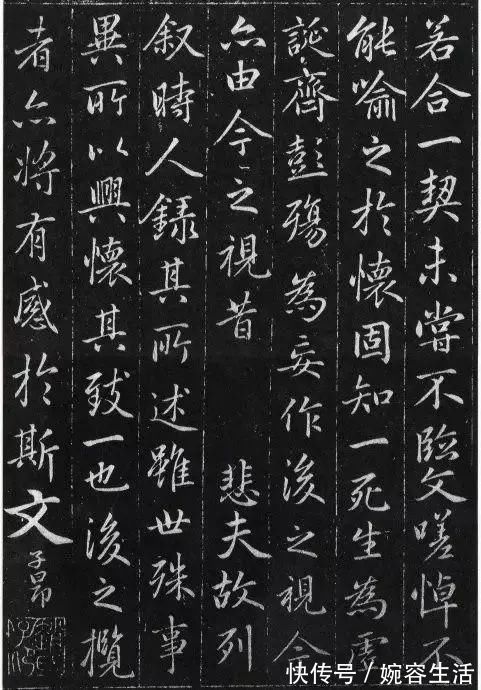 若合一契未嘗不臨文嗟悼不
能喻之於懷固知一死生為虛
誕齊彭殤為妄作後之視今
亦由今之視昔 悲夫故列
叙時人錄其所述雖世殊事
異所以興懷其致一也後之攬
者亦將有感於斯文 子昂
快传号/婉容生活